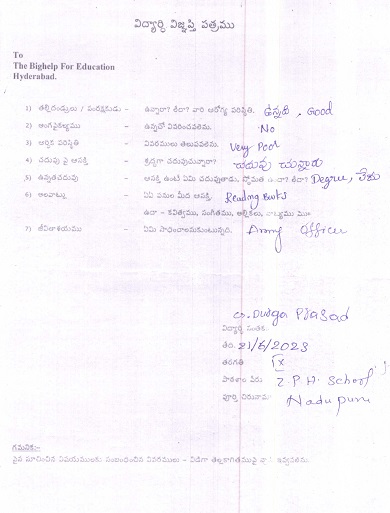 విద్యార్ధి విజ్ఞప్తి పత్రము
To
The Bighelp For Education
Hyderabad.
1) తల్లిదండ్రులు / సంరక్షకుడు - ఉన్నారా? లేదా? వారి ఆరోగ్య పరిస్థితి. ఉన్నది, Good
2) అంగవైకల్యము - ఉన్నచో వివరించవలెను. No
3) ఆర్థిక పరిస్థితి - వివరములు తెలుపవలెను. Very Poor
4) చదువు పై ఆసక్తి - శ్రద్ధగా చదువుచున్నారా?
5) ఉన్నతచదువు - ఆసక్తి ఉంటే ఏమి చదువుతాడు, స్తోమత ఉందా? లేదా? Degree, లేదు
6) అలవాట్లు - ఏఏ పనుల మీద ఆసక్తి. Reading Books
ఉదా - కవిత్వము, సంగీతము,
7) జీవితాశయము - ఏమి సాధించాలనుకుంటున్నది. Army Officer
Durga Prasad
విద్యార్ధి సంతకం
తేది. 21/6/2023
తరగతి IX
పాఠశాల పేరు Z.P.H. School
పూర్తి చిరునామ Nadupuru
గమనిక:-
పైన సూచించిన విషయములకు సంబంధించిన వివరములు - విడిగా తెల్లకాగితముపై ఇవ్వవలెను.